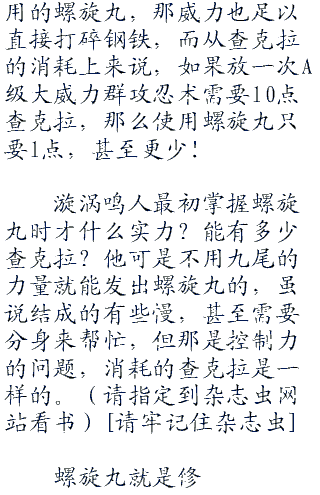 用的螺旋丸，那威力也足以
直接打碎钢铁，而从查克拉
的消耗上来说，如果放一次A
级大威力群攻忍术需要10点
查克拉，那么使用螺旋丸只
要1点，甚至更少！
漩涡鸣人最初掌握螺旋
丸时才什么实力？能有多少
查克拉？他可是不用九尾的
力量就能发出螺旋丸的，虽
说结成的有些慢，甚至需要
分身来帮忙，但那是控制力
的问题，消耗的查克拉是一
样的。（请指定到杂志虫网
站看书）[请牢记住杂志虫]
螺旋丸就是修